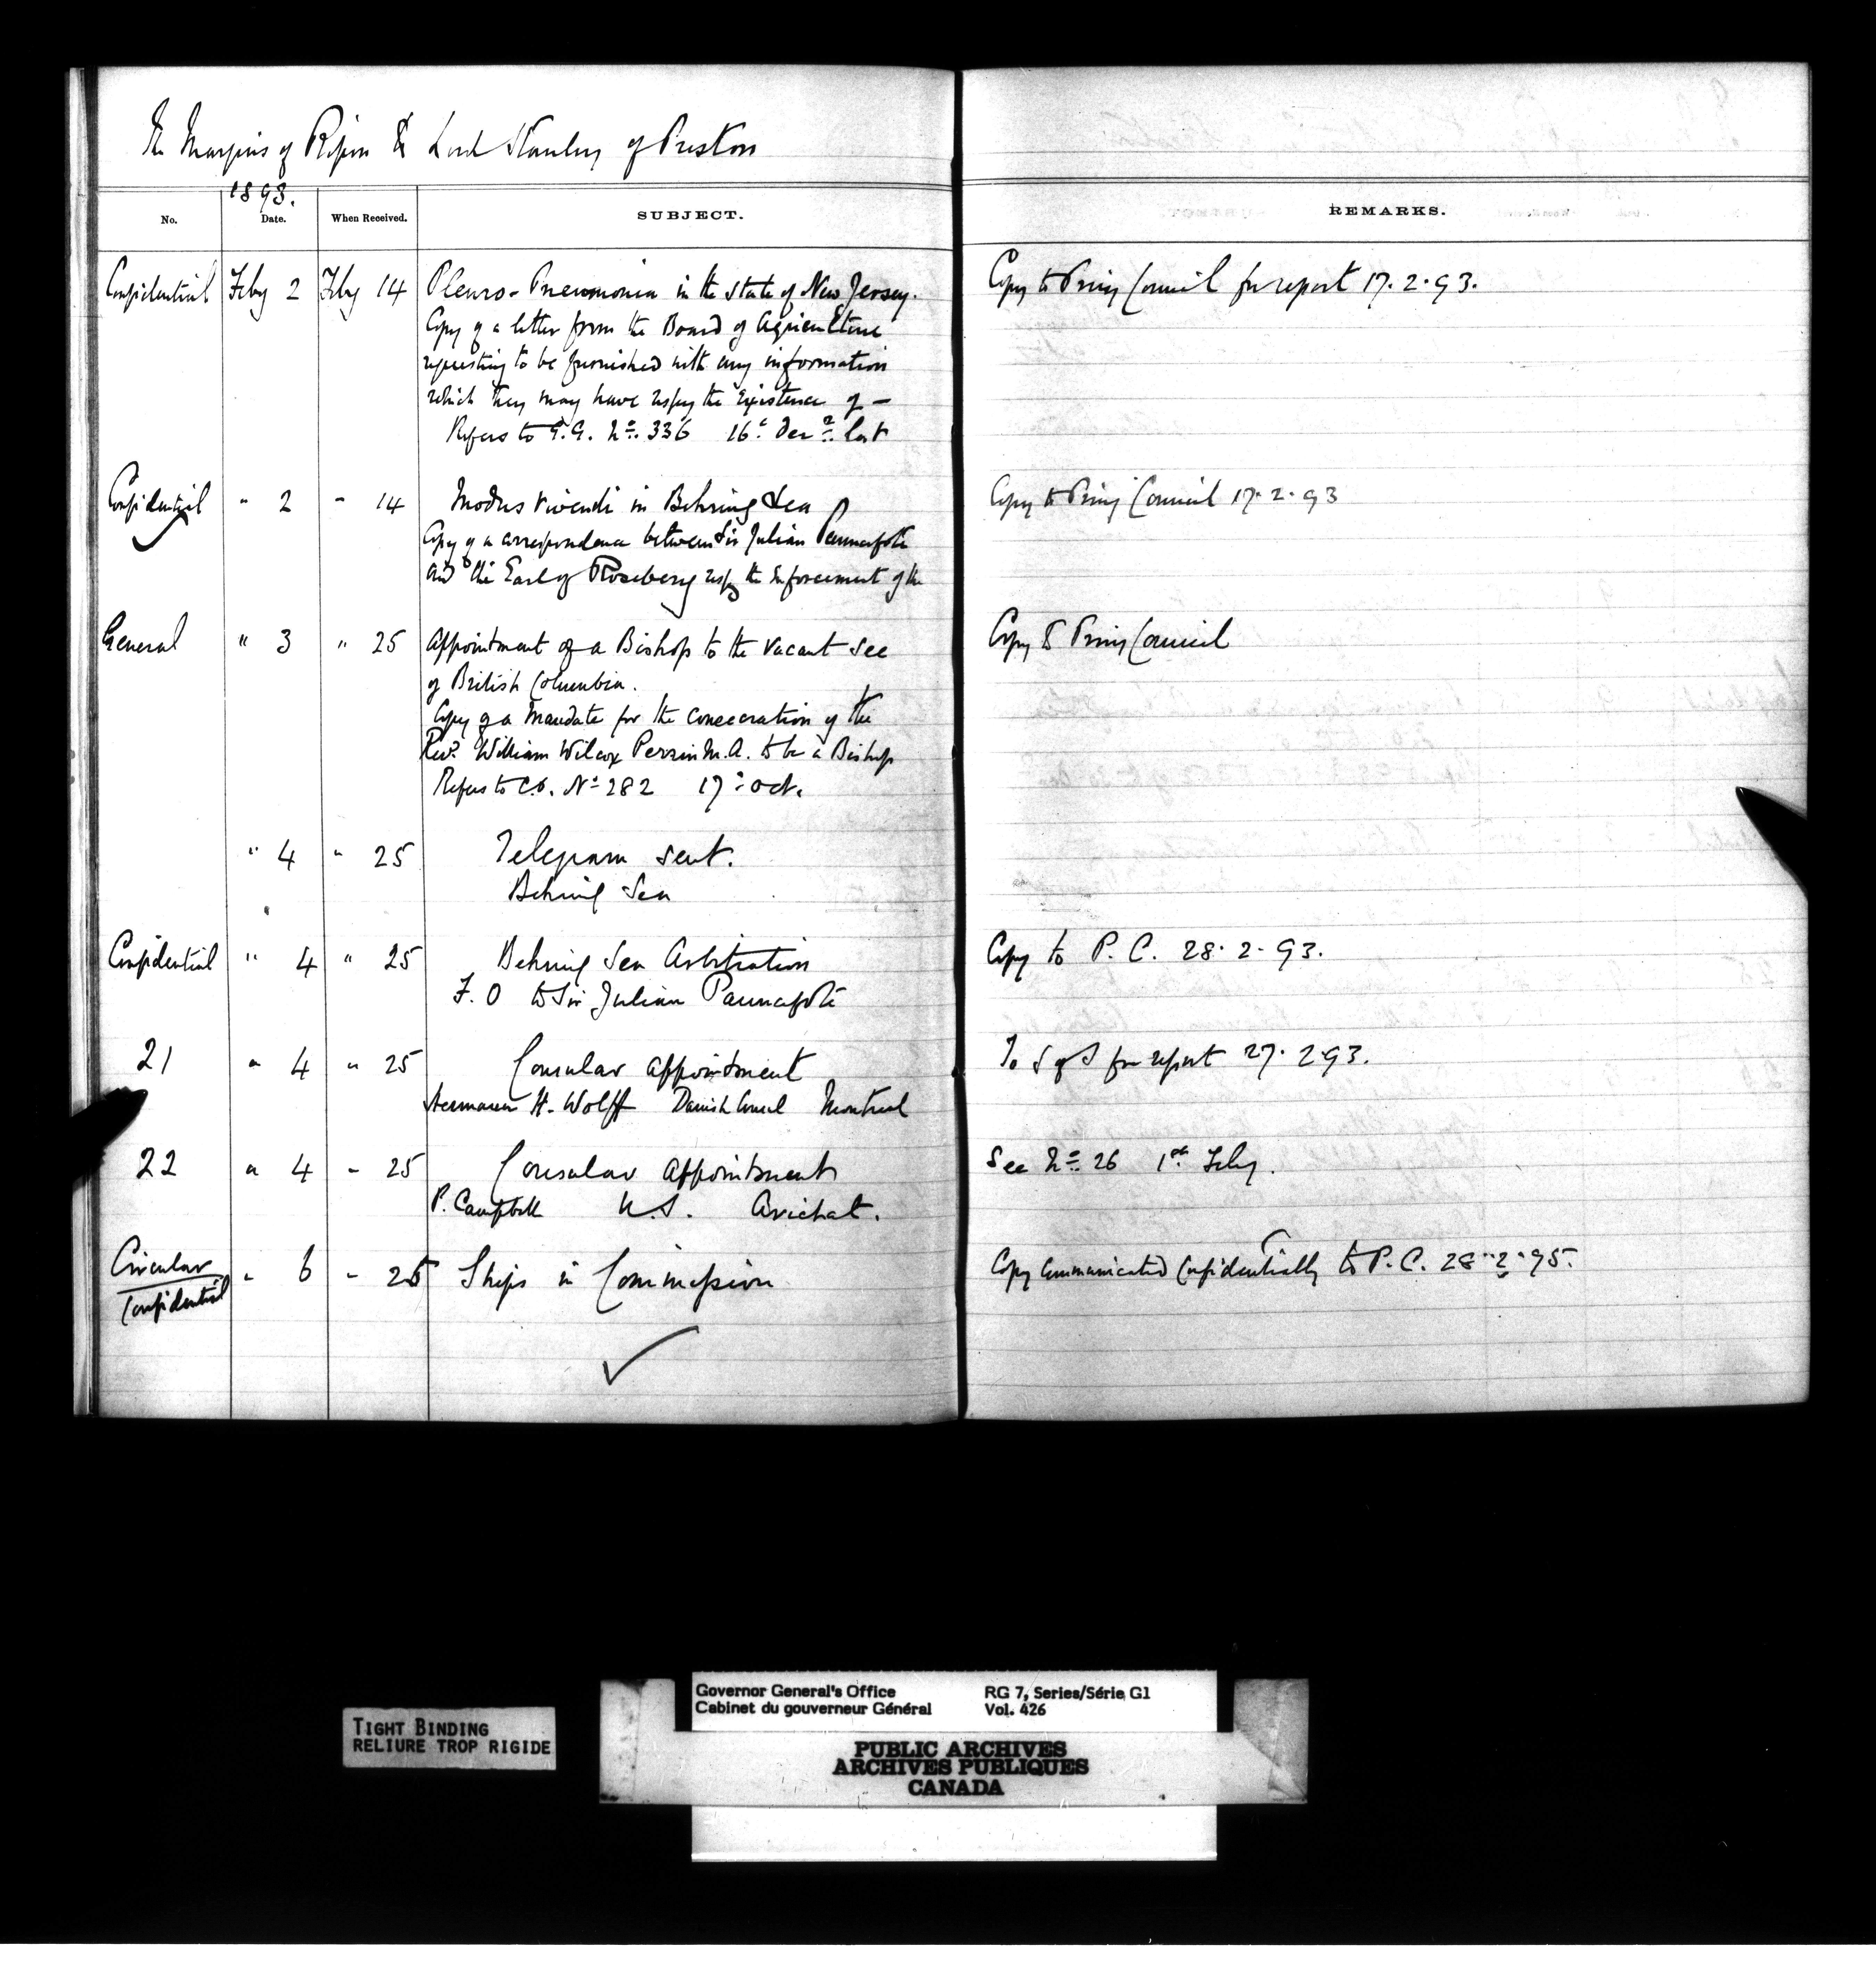 The Marquis of Ripon to Lord Stanley of Preston
1893.
No. Date. When Received. SUBJECT. REMARKS.
Confidential Feby 2 Feby 14 Pleuro-Pneumonia in the State of New Jersey. Copy to Privy Council for report 17.2.93.
Copy of a letter from the Board of Agriculture
requesting to be furnished with any information
which they may have respg the Existence of —
Refers to G.G. No. 336 16th Decr. last
Confidential " 2 " 14 Modus Vivendi in Behring Sea Copy to Privy Council 17.2.93
Copy of a correspondence between Sir Julian Pauncefote
and the Earl of Rosebery respg the Enforcement of the
General " 3 " 25 Appointment of a Bishop to the vacant See Copy to Privy Council
of British Columbia.
Copy of a Mandate for the Consecration of the
Revd. William Wilcox Perrin M.A. to be a Bishop
Refers to C.O. No 282 17th Oct.
" 4 " 25 Telegram sent.
Behring Sea
Confidential " 4 " 25 Behring Sea Arbitration Copy to P.C. 28.2.93.
F.O to Sir Julian Pauncefote
21 " 4 " 25 Consular Appointment To S of S for report 27.2.93.
Hermann H. Wolff Danish Consul Montreal
22 " 4 " 25 Consular Appointment See No. 26 1st Feby.
P. Campbell U.S. Arichat.
Circular " 6 " 25 Ships in Commission Copy Communicated Confidentially to P.C. 28.2.95.
Confidential
Governor General's Office RG 7, Series/Série G1
Cabinet du gouverneur Général Vol. 426
TIGHT BINDING
RELIURE TROP RIGIDE
PUBLIC ARCHIVES
ARCHIVES PUBLIQUES
CANADA